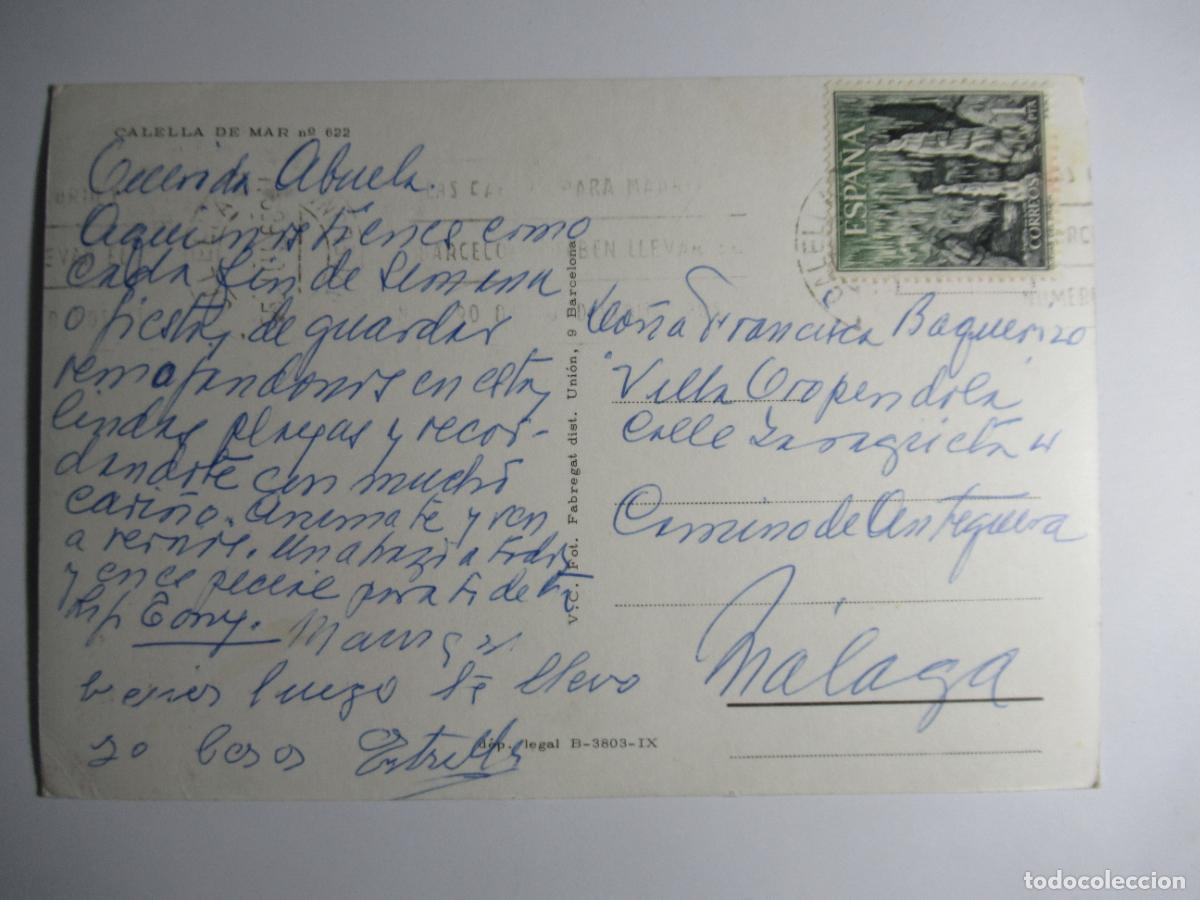 CALELLA DE MAR nº 622
Querida Abuela.
Aqui nos tienes como
cada fin de semana
o fiestas de guardar
remojandonos en estas
lindas playas y recor-
dandote con mucho
cariño. Animate y ven
a vernos. Un abrazo a todos
y en especial para ti de tu
Tony.
luego te llevo
besos Estrella
dep. legal B-3803-IX
V. C. Fot. Fabregat dist. Unión, 9 Barcelona
ESPAÑA
1 PTA
CORREOS
LAS CA PARA MADRI
BARCELO BEN LLEVAR
Doña Francisca Baquerizo
Villa Oropendola
Calle
Camino de Antequera
Málaga
todocoleccion